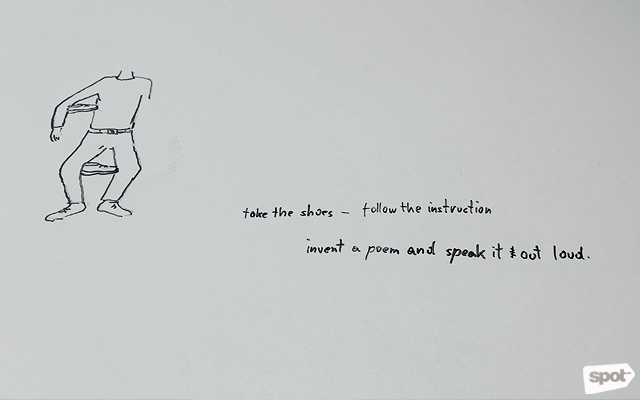 take the shoes – follow the instruction
invent a poem and speak it out loud.
spot